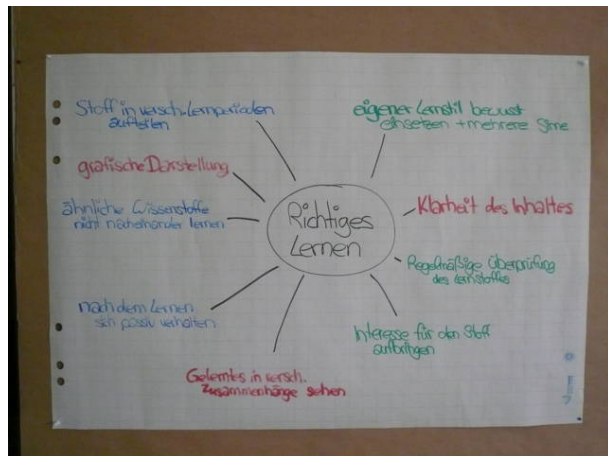 Stoff in versch. Lernperioden
aufteilen
grafische Darstellung
ähnliche Wissenstoffe
nicht nacheinander lernen
nach dem Lernen
sich passiv verhalten
Gelerntes in versch.
Zusammenhänge sehen
Richtiges
Lernen
eigener Lernstil bewusst
einsetzen + mehrere Sinne
Klarheit des Inhaltes
Regelmäßige Überprüfung
des Lernstoffes
Interesse für den Stoff
aufbringen